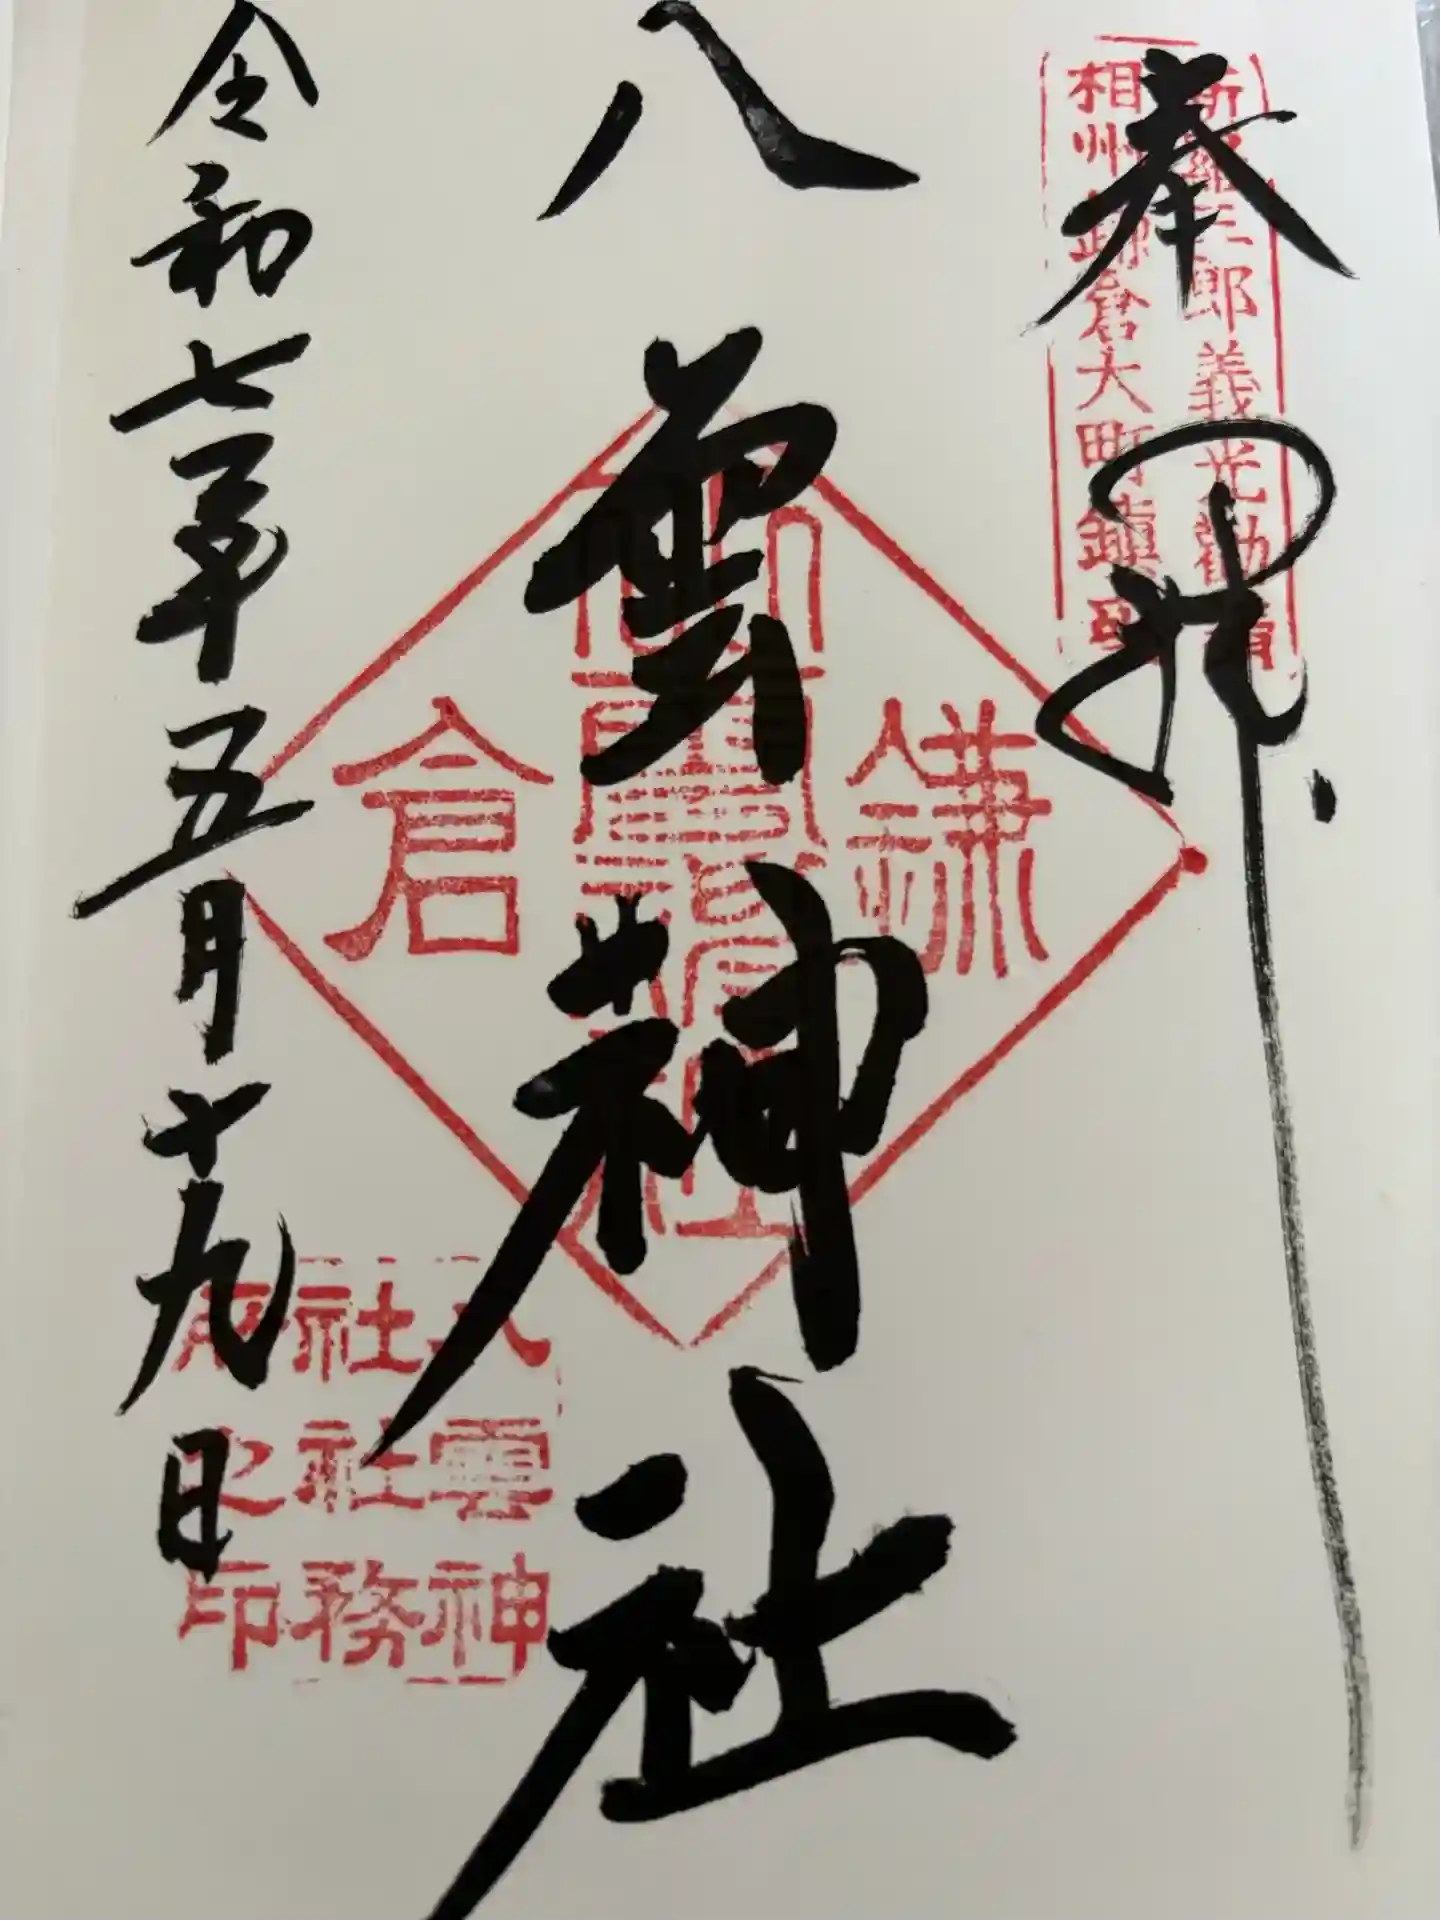 奉拝
新羅三郎義光勧請
相州鎌倉大町鎮座
八雲神社
鎌倉
八雲神社
令和七年五月十九日
八雲神
社社務
所之印